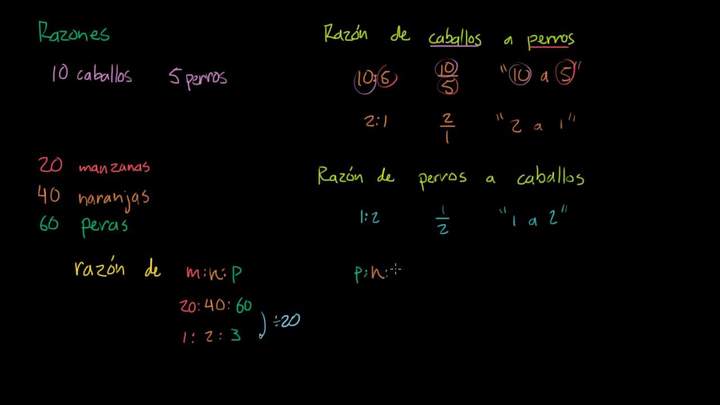 Razones
10 caballos 5 perros
20 manzanas
40 naranjas
60 peras
razón de m:n:p
20:40:60
1:2:3
÷20
Razón de caballos a perros
10:5 10/5 "10 a 5"
2:1 2/1 "2 a 1"
Razón de perros a caballos
1:2 1/2 "1 a 2"
p:n: